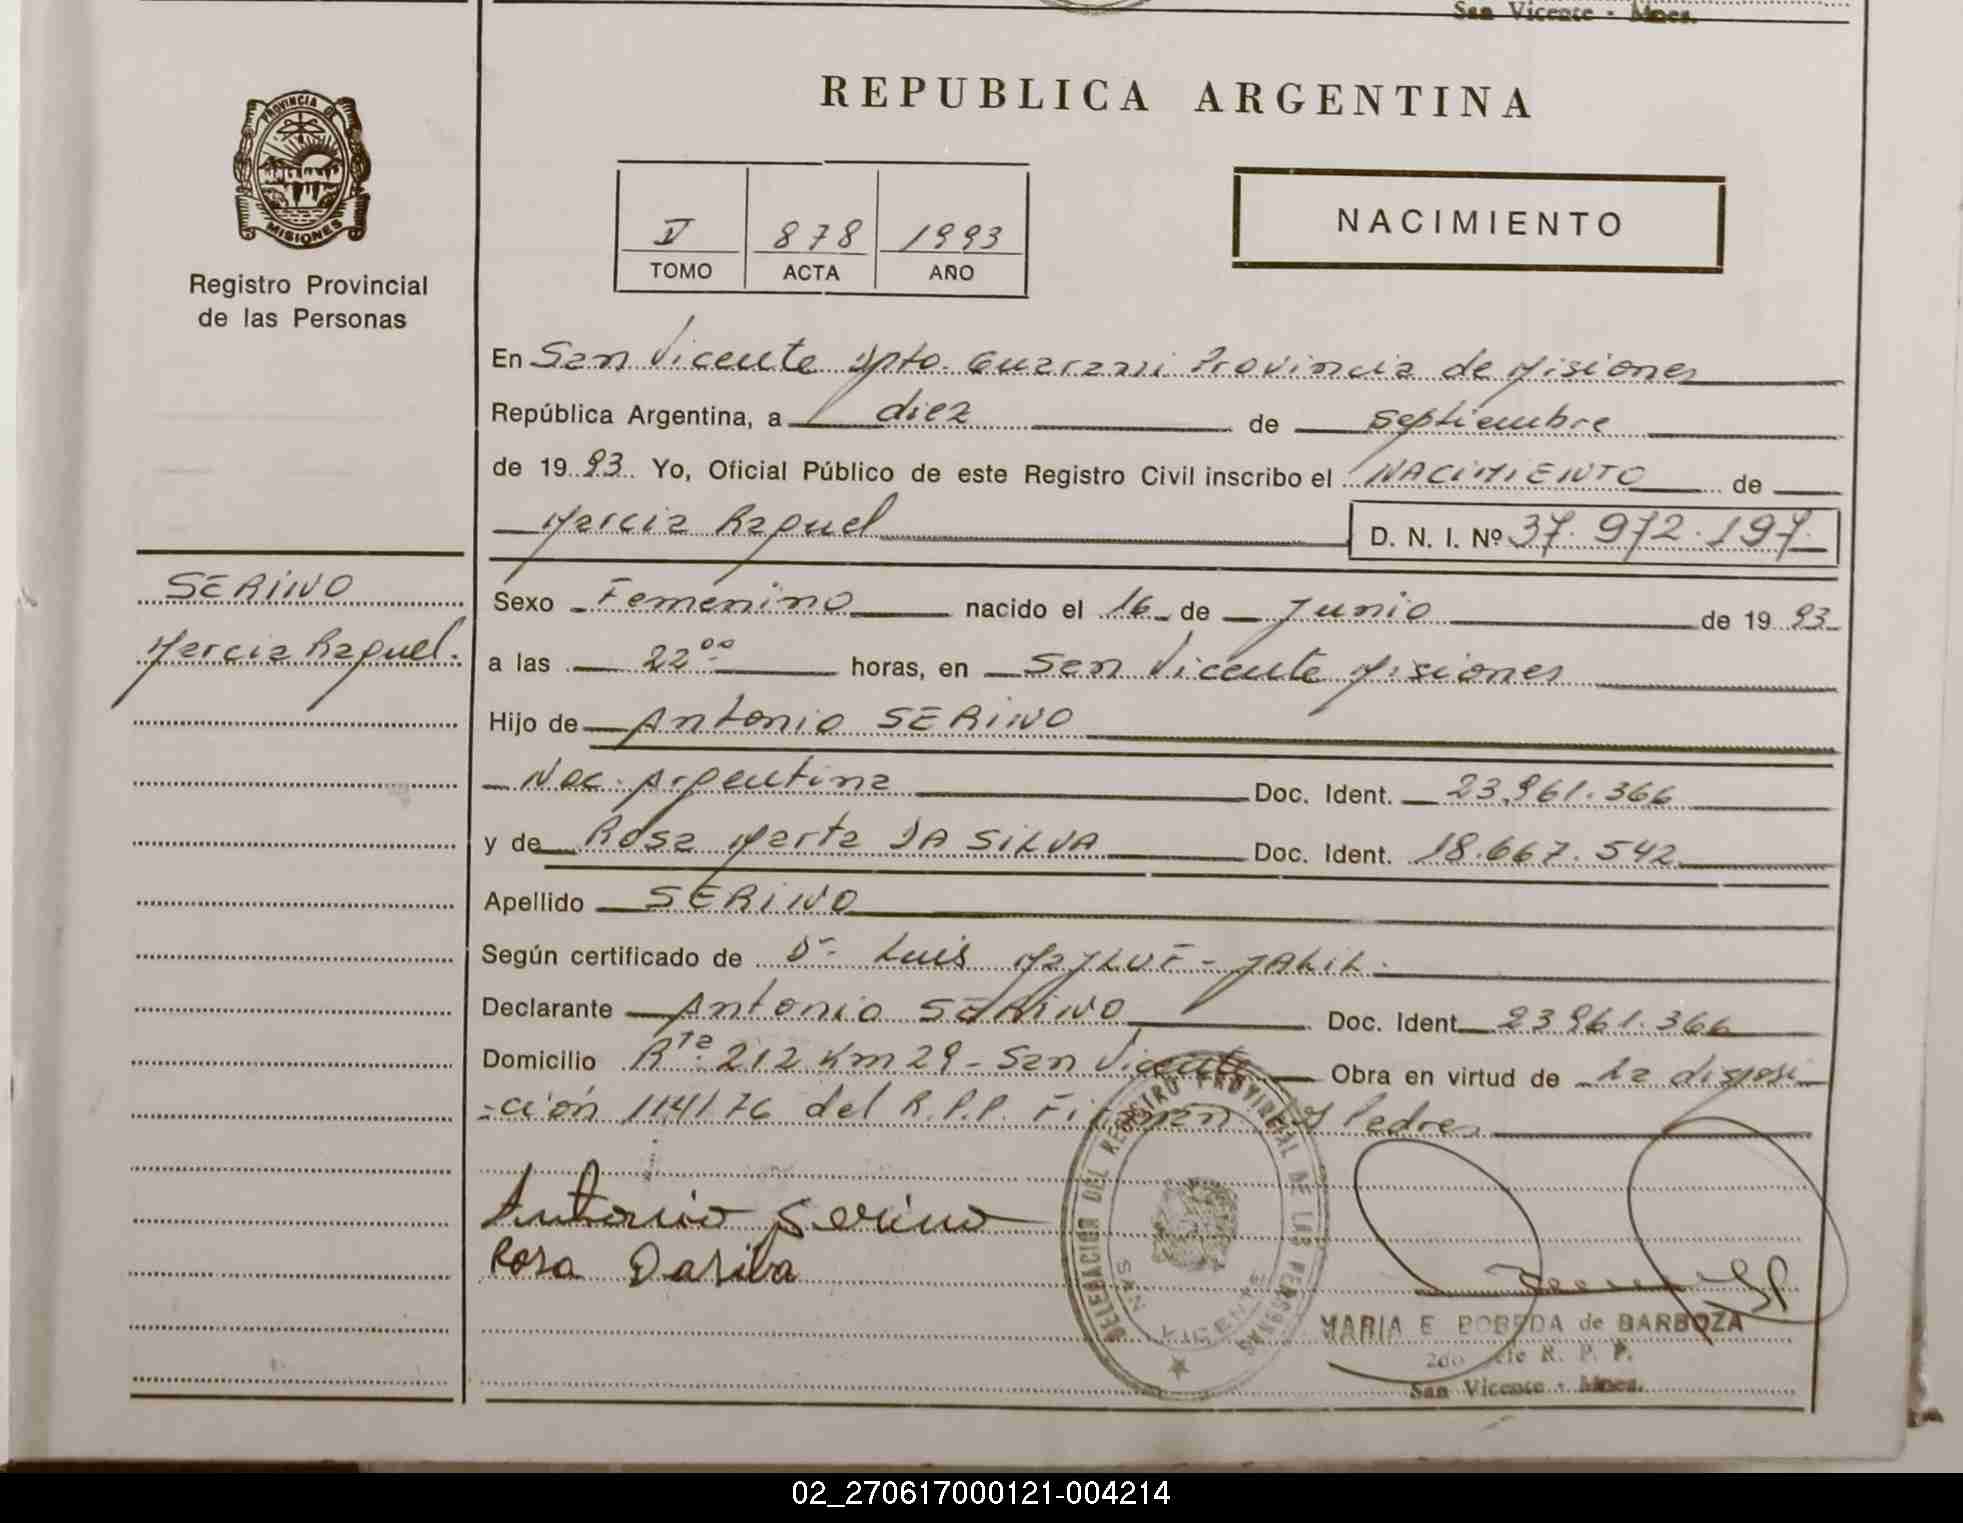 San Vicente - Mnes.
REPUBLICA ARGENTINA
PROVINCIA D
MISIONES
Registro Provincial
de las Personas
V 878 1993
TOMO ACTA AÑO
NACIMIENTO
En San Vicente Dpto. Guarani Provincia de Misiones
República Argentina, a diez de septiembre
de 19 93 Yo, Oficial Público de este Registro Civil inscribo el NACIMIENTO de
Marcia Raquel D. N. I. Nº 37.972.197.
SERINO
Marcia Raquel.
Sexo Femenino nacido el 16 de Junio de 19 93
a las 22 ºº horas, en San Vicente Misiones
Hijo de Antonio SERINO
Nac. Argentina Doc. Ident. 23.961.366
y de Rosa Marta DA SILVA Doc. Ident. 18.667.542
Apellido SERINO
Según certificado de Dr. Luis - JALIL.
Declarante Antonio SERINO Doc. Ident 23961.366
Domicilio Rta. 212 Km 29 - San Vicente Obra en virtud de la disposi
=ción 1141 76 del R.P.P. Firman Padres
Antonio Serino
Rosa Dasilva
DELEGACION DEL REGISTRO PROVINCIAL DE LAS PERSONAS
SAN VICENTE
MARIA E BOBEDA de BARBOZA
2do R. P. P.
San Vicente - Mnes.
02_270617000121-004214